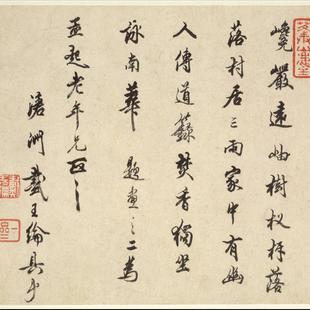 巉巖遠岫樹杈枒落
落村居三兩家中有幽
人傳道籙焚香獨坐
詠南華 題畫之二為
孟起老年兄正之
滄洲戴王綸具